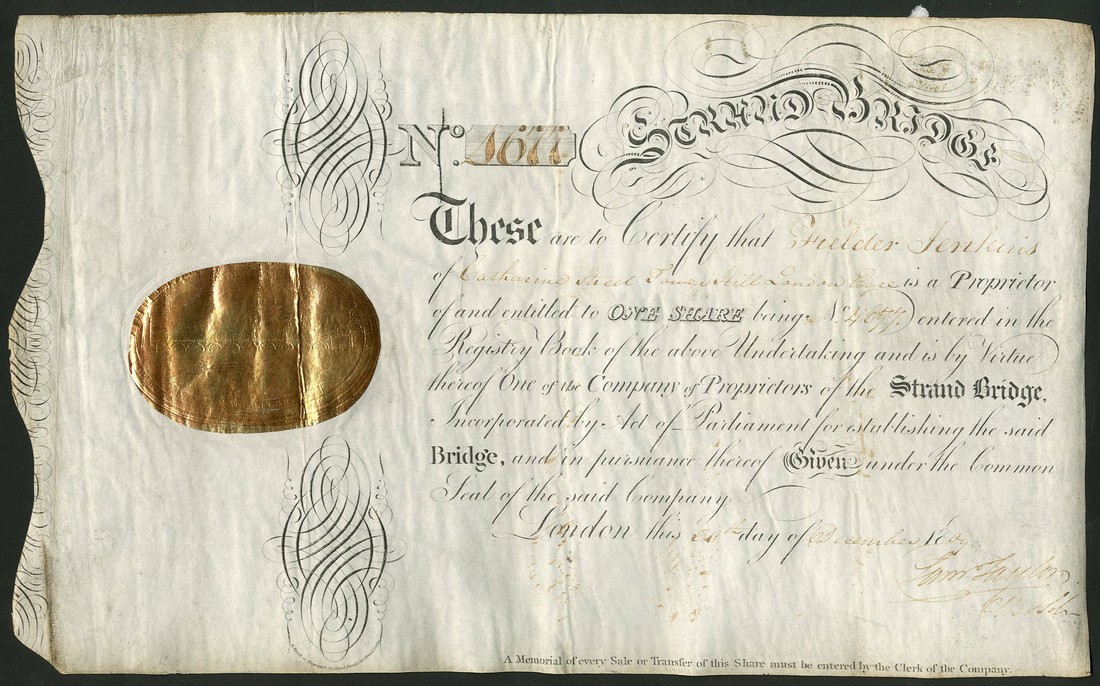 STRAND BRIDGE
No. 1677
These are to Certify that Fielder Jenkins
of Catharine Street Tower Hill London is a Proprietor
of and entitled to ONE SHARE being No entered in the
Registry Book of the above Undertaking and is by Virtue
thereof One of the Company of Proprietors of the Strand Bridge,
Incorporated by Act of Parliament for establishing the said
Bridge, and in pursuance thereof Given under the Common
Seal of the said Company
London this day of December
A Memorial of every Sale or Transfer of this Share must be entered by the Clerk of the Company.